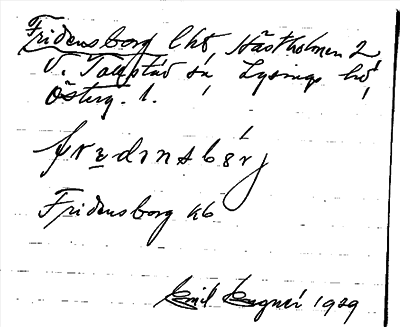 Fridensborg lht, Hästholmen 2,
V. Tollstad sn, Lysings hd,
Österg. l.
fredɪnsbǝrj
Fridensborg kb
Emil Eugnér 1929